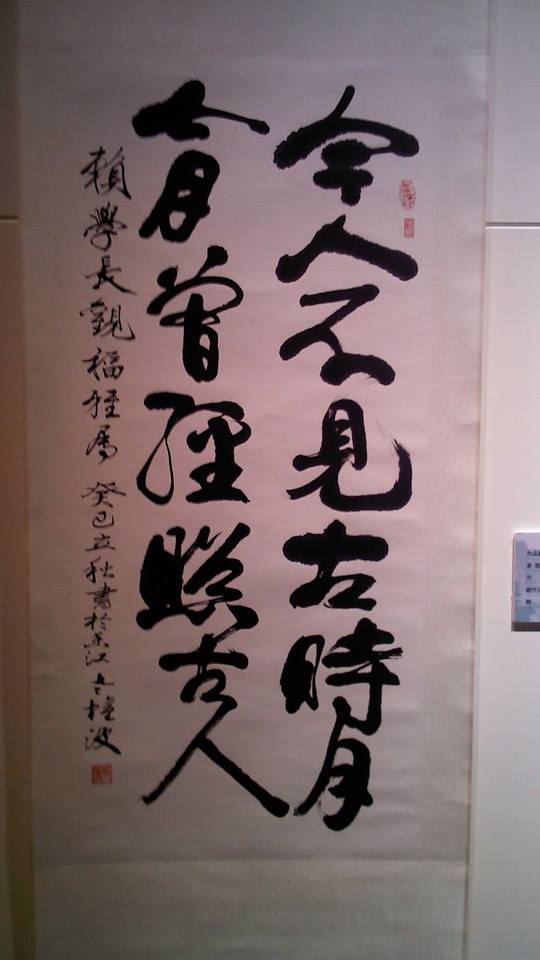 今人不見古時月
今月曾經照古人
賴學長觀福雅屬 癸巳立秋書於香江